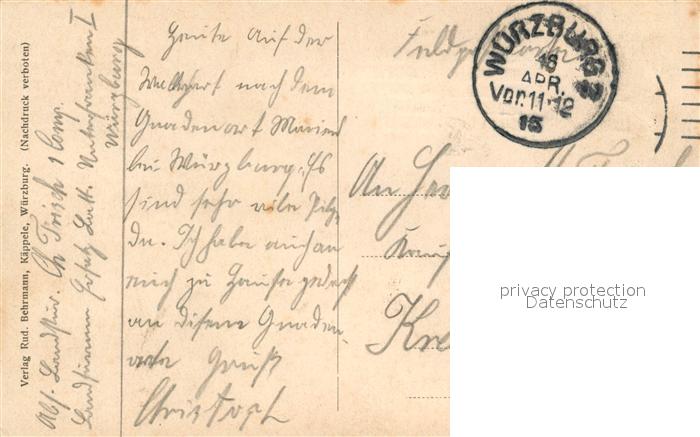 Heute auf der
Wallfart nach dem
Gnadenort Marien
bei Würzburg. Es
sind sehr viele Pilger
da. Ich habe auch an
mich zu Hause gedacht
an diesem Gnaden-
orte Gruß
Christoph
Feldpostkarte
WÜRZBURG 2
16
APR.
Vor. 11-12
15
An
Kre
privacy protection
Datenschutz
Verlag Rud. Behrmann, Käppele, Würzburg. (Nachdruck verboten)
Abs. Landstur. Ch Frisch 1 Comp.
Landsturm Ersatz Batt. Unterfranken I
Würzburg